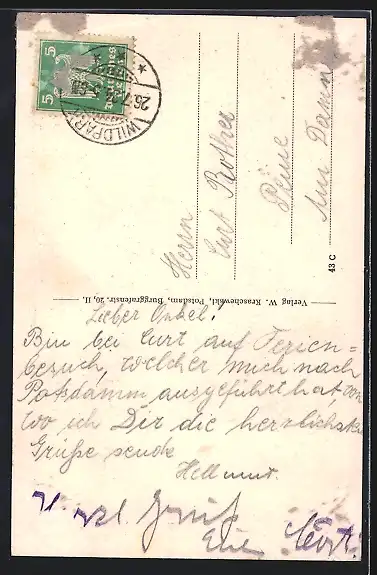 5
5
Deutsches Reich
WILDPARK
26.7.
Herrn
Curt Rother
Peine
Am Damm
43 C
Verlag W. Kraschewski, Potsdam, Burggrafenstr. 20, II.
Lieber Onkel!
Bin bei Curt auf Ferien=
besuch, welcher mich nach
Potsdamm ausgeführt hat von
wo ich Dir die herzlichsten
Grüße sende
Hellmut.
Gruß
Curt